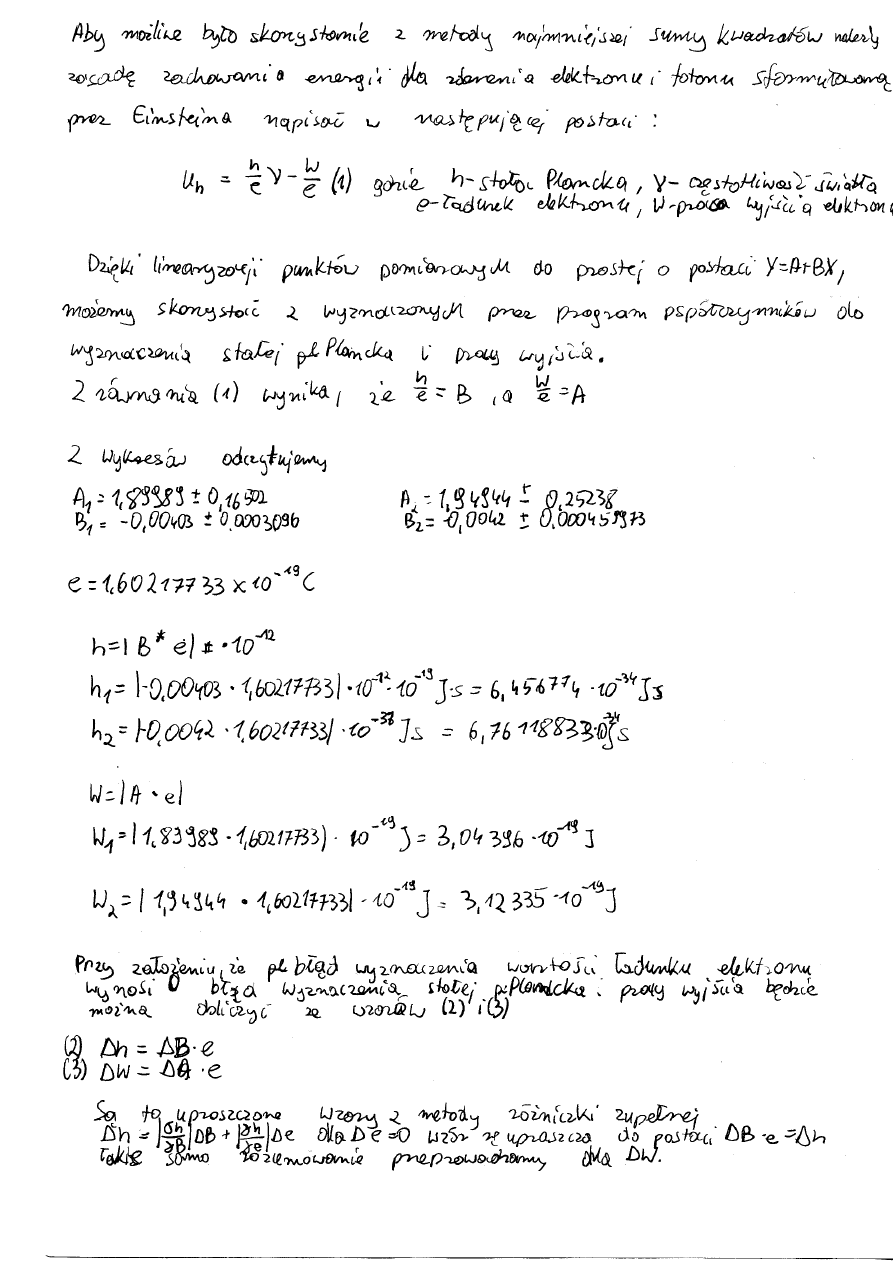 Aby możliwe było skorzystanie z metody najmniejszej sumy kwadratów należy
zasadę zachowania energii dla zderzenia elektronu i fotonu sformułowaną
przez Einsteina napisać w następującej postaci :
U_h = h/e γ - W/e (1) gdzie h-stała Plancka, γ- częstotliwość światła
e-ładunek elektronu, W-praca wyjścia elektronu
Dzięki linearyzacji punktów pomiarowych do prostej o postaci Y=A+BX,
możemy skorzystać z wyznaczonych przez program pspółczynników do
wyznaczenia stałej pl Plancka i pracy wyjścia.
Z równania (1) wynika, że h/e = B , a W/e = A
Z Wykresów odczytujemy
A₁ = 1,89989 ± 0,16302 A₂ = 1,94944 ± 0,25238
B₁ = -0,00403 ± 0,0003096 B₂ = -0,0042 ± 0,000459973
e = 1,60217733 × 10⁻¹⁹ C
h = | B * e| · 10⁻¹²
h₁ = |-0,00403 · 1,60217733| · 10⁻¹² · 10⁻¹⁹ J·s = 6,456774 · 10⁻³⁴ Js
h₂ = |-0,0042 · 1,60217733| · 10⁻³⁸ Js = 6,76118833·10⁻³⁴ Js
W = |A · e|
W₁ = |1,89989 · 1,60217733| · 10⁻¹⁹ J = 3,04396 · 10⁻¹⁹ J
W₂ = | 1,94944 · 1,60217733| · 10⁻¹⁹ J = 3,12335 · 10⁻¹⁹ J
Przy założeniu, że błąd wyznaczenia wartości ładunku elektronu
wynosi 0 błąd wyznaczenia stałej Plancka i pracy wyjścia będzie
można obliczyć ze wzorów (2) i (3)
(2) Δh = ΔB · e
(3) ΔW = ΔA · e
Są to uproszczone wzory z metody różniczki zupełnej
Δh = |∂h/∂B| ΔB + |∂h/∂e| Δe dla Δe = 0 wzór się upraszcza do postaci ΔB · e = Δh
takie samo rozumowanie przeprowadzamy dla ΔW.